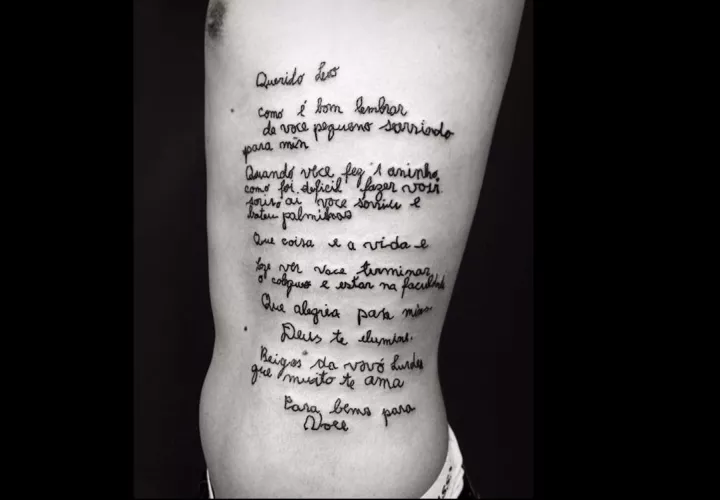 Querido Leo
como é bom lembrar
de voce pequeno sorrindo
para mim
Quando voce fez 1 aninho,
como foi deficil fazer voce
sorriso ai voce sorriu e
bateu palminhas
Que coisa e a vida e
hoje ver voce terminar
o colegio e estar na faculdade
Que alegria para mim.
Deus te elumine.
Beijos da vovó Lurdes
que muito te ama
Para bems para
Voce